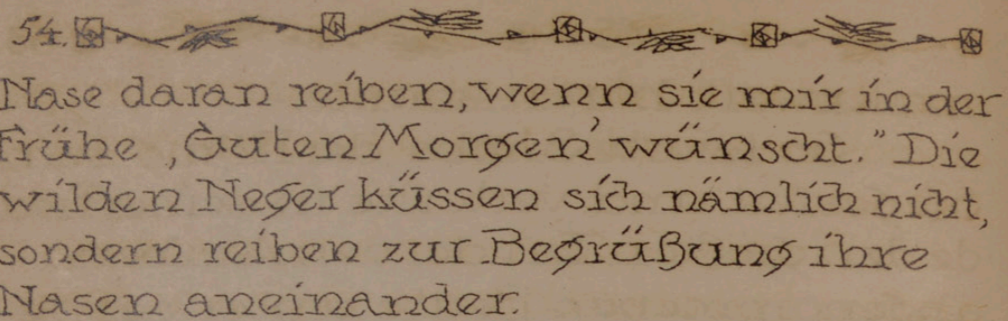 54.
Nase daran reiben, wenn sie mir in der
Frühe ‚Guten Morgen' wünscht." Die
wilden Neger küssen sich nämlich nicht,
sondern reiben zur Begrüßung ihre
Nasen aneinander.